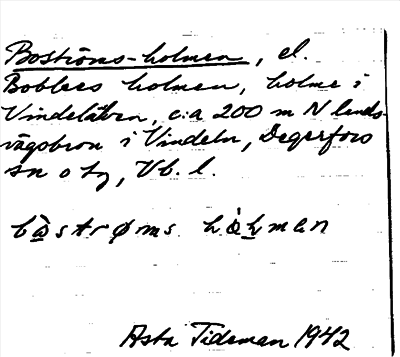 Boströms-holmen, el.
Boblers holmen, holme i
Vindelälven, c:a 200 m N lands-
vägsbron i Vindeln, Degerfors
sn o tg, Vb. l.
Asta Tideman 1942